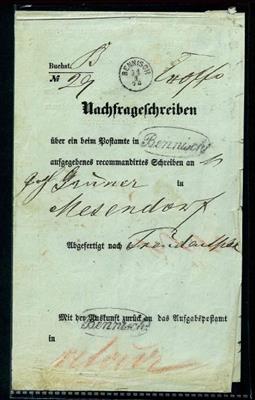 Buchst. B
BENNISCH
№ 29
Nachfrageschreiben
über ein beim Postamte in Bennisch
aufgegebenes recommandirtes Schreiben an
Grüner in
Mesendorf
Abgefertigt nach
Mit der Auskunft zurück an das Aufgabspostamt
Bennisch
in
retour